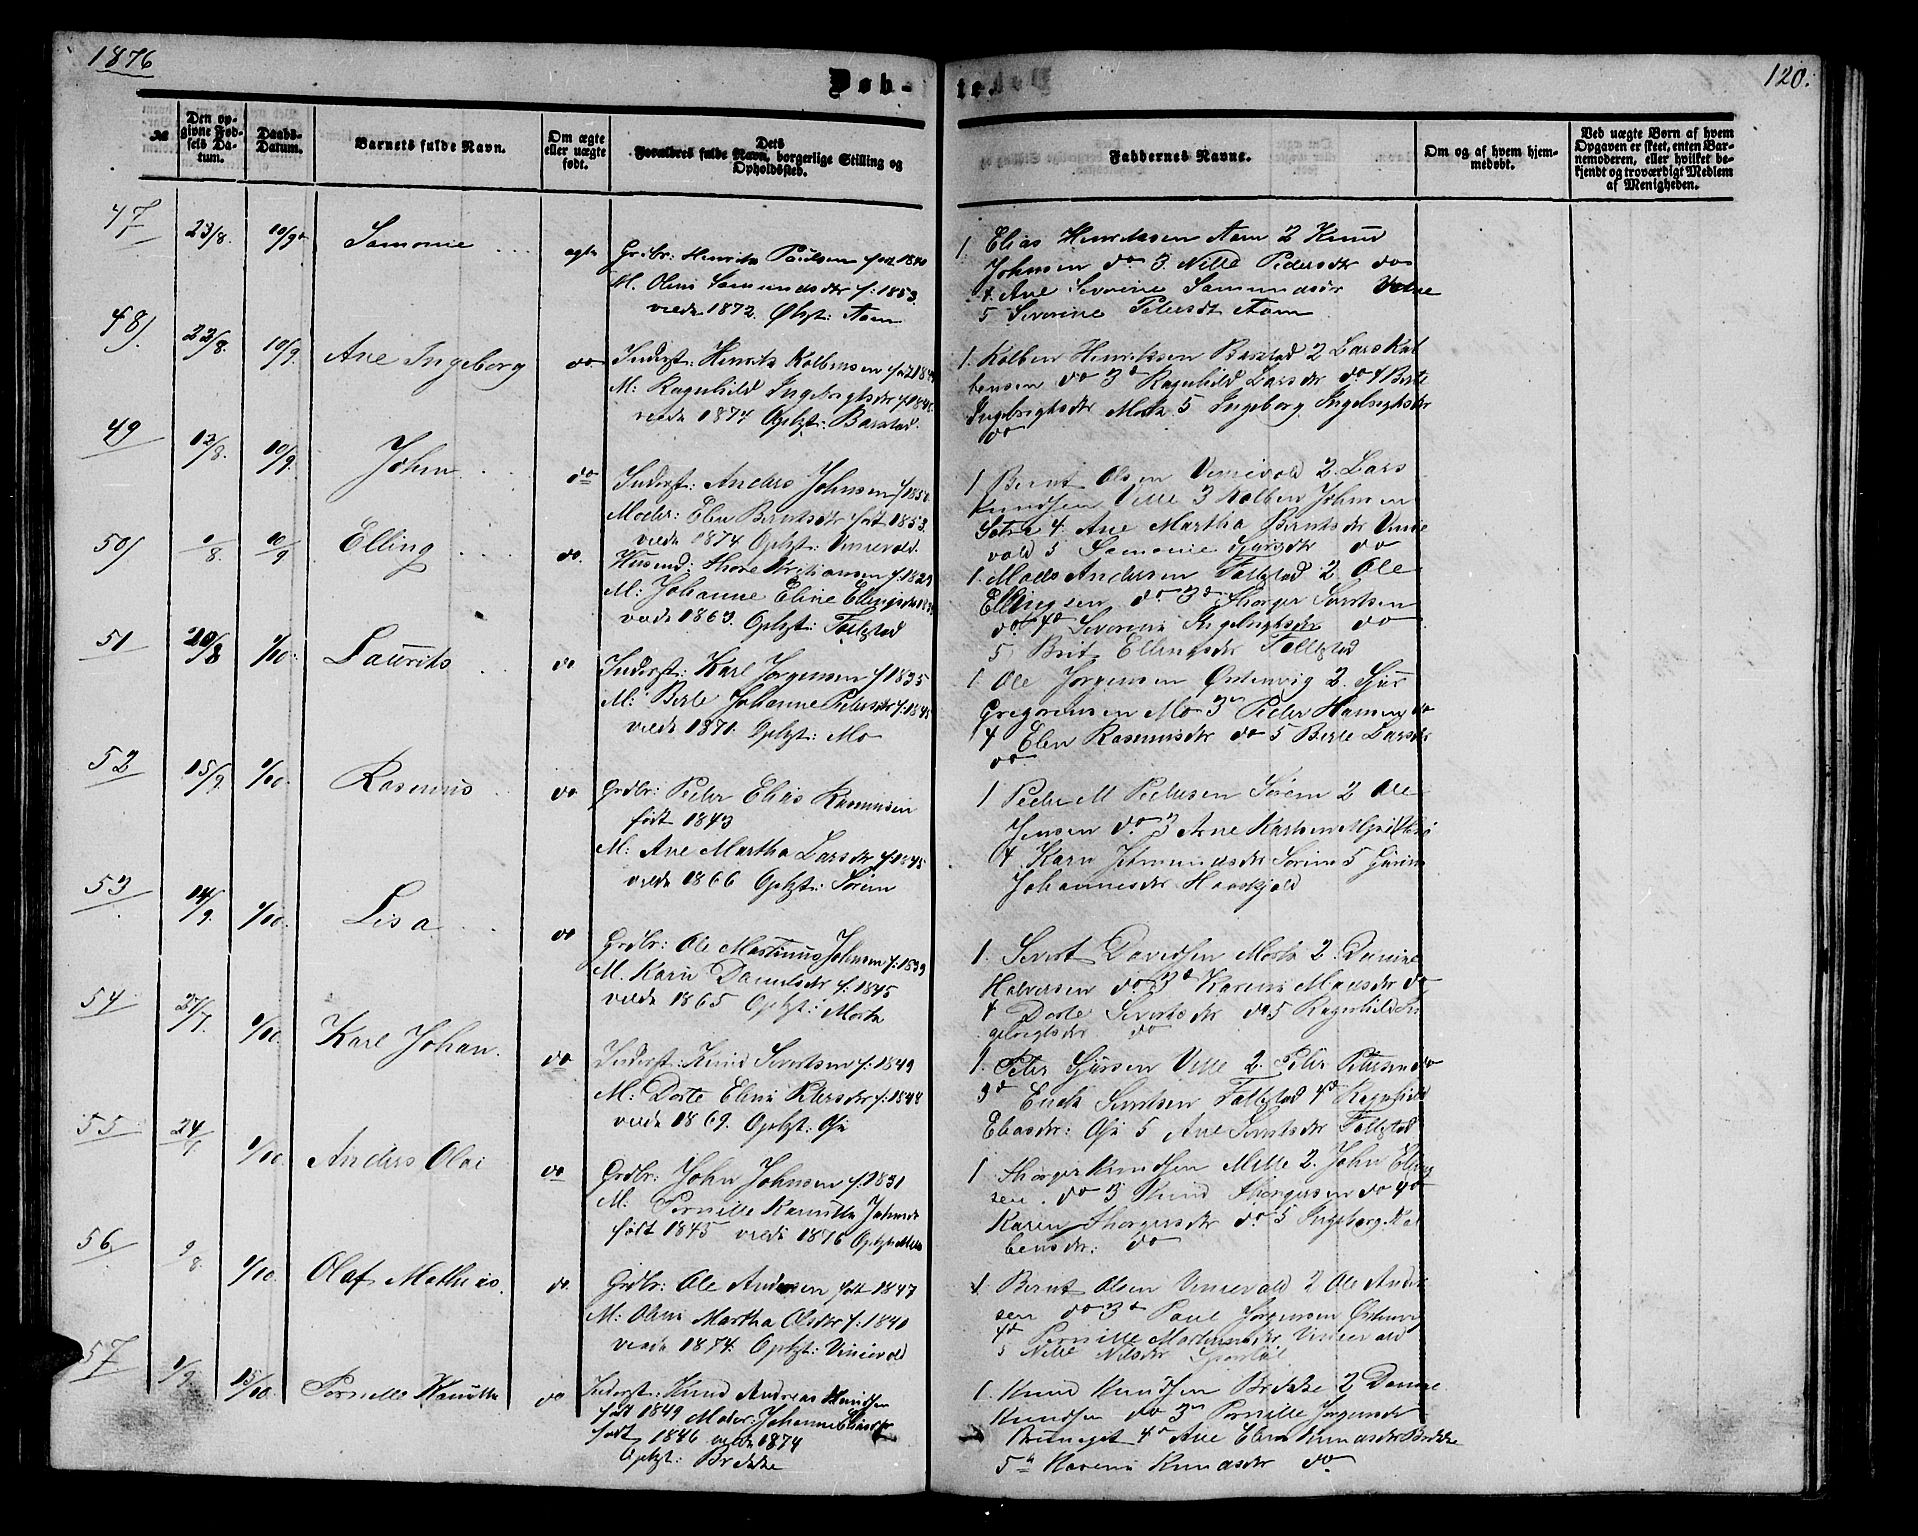 1876
120.
Døb-
te.
№
Den op-
givne Fød-
sels Da-
tum.
Daabs-
Datum.
Barnets fulde Navn.
Om ægte
eller uægte
født.
Dets
Forældres fulde Navn, borgerlige Stilling og
Opholdssted.
Faddernes Navne.
Om og af hvem hjem-
medøbt.
Ved uægte Børn af hvem
Opgaven er skeet, enten Bar-
nemoderen, eller hvilket be-
kjendt og troværdigt Medlem
af Menigheden.
47
23/8.
10/9
Samonie
ægte
Grdbr: Henrik Paulsen født 1840
M. Oline Samundsdtr f: 1853.
viede 1872. Aam
1. Elias Henriksen Aam 2 Knud
Johnsen do 3. Nille Pedersdtr do
4. Ane Severine Samundsdr
5 Severine Petersdt Aam
48)
22/8.
10/9.
Ane Ingeborg
do
Inderst: Henrik Kolbensen
M: Ragnhild Ingebrigtsdtr
viede 1874 Oplzt: Barstad.
1. Kolben Henriksen Barstad 2 Lars Kol
bensen do 3 Ragnhild Larsdtr do 4 Berte
Ingebrigtsdtr Mork 5 Ingeborg Ingebrigtsdtr
do
49
12/8.
10/9.
John
do
Inderst: Anders Johnsen f 1850
Moder: Elen Berntsdtr født 1853.
viede 1874 Oplzt: Vinievold.
1 Bernt Olsen Vinievold 2. Lars
Knudsen Velle 3 Kolben Johnsen
4. Ane Martha Berntsdtr Vinie
vold 5 Samonie Sjursdtr do
50)
1/8.
10/9
Elling
do.
Husmd: Thore Kristiansen f. 1829
M: Johanne Eline Ellingsdtr
viede 1863. Oplzt: Follestad
1. Mads Andersen Follestad 2 Ole
Ellingsen do 3 Thorger Sivertsen
do 4 Severine Ingebrigtsdtr do
5 Brit Ellingsdtr Follestad
51
20/8
1/10.
Laurits
do
Inderst: Karl Jorgensen f 1835
M: Berte Johanne Pedersdtr f. 1845
viede 1871. Oplzt: Mo
1. Ole Jorgensen Ostenvig 2. Sjur
Gregoriussen Mo 3 Peder Hansen do
4 Elen Rasmusdtr do 5 Berte Larsdtr
do
52
15/9.
1/10.
Rasmus
do
Grdbr: Peder Elias Rasmussen
født 1843
M. Ane Martha Larsdtr f. 1845
viede 1866 Oplzt: Sörem
1 Peder M Pedersen Sörem 2 Ole
Jensen do 3 Arne Karlsen
4. Karn Johnsdtr Sörem 5
Johannesdtr Haaskjold
53
14/9.
1/10.
Lisa
do
Grdbr: Ole Martinus Johnsen f. 1839
M. Karn Danielsdtr f. 1845
viede 1865 Oplzt: Mork
1. Sivert Davidsen Mork 2.
Halvorsen do 3 Karen Madsdtr do
4 Dorte Sivertsdtr do 5 Ragnhild In
gebrigtsdtr do
54
27/7.
1/10.
Karl Johan.
do
Inderst: Knud Sivertsen f: 1849
M: Dorte Eline Petersdtr f: 1848
viede 1869. Oplzt:
1. Peter Sjursen Velle 2. Peter Petersen do
3 Sivertsen Follestad 4 Ragnhild
Eliasdtr: 5 Ane Sivertsdtr Follestad
55
24/7
1/10.
Anders Olai
do
Grdbr: John Johnsen f. 1831
M. Pernille Kanutta Johnsdt
født 1845 viede 1876 Oplzt: Melle
1 Thorger Knudsen Melle 2. John Elling
sen. do 3 Knud Thorgersen do 4
Karen Thorgersdtr do 5 Ingeborg Kol
bensdtr: do
56
2/8.
1/10.
Olaf Mathias.
do.
Grdbr: Ole Andersen født 1847
M: Oline Martha Olsdtr f: 1840
viede 1874. Oplzt: Vinievold
1. Bernt Olsen Vinievold 2 Ole Ander
sen do 3 Paul Jorgensen
4 Pernille Martinusdtr Vinievold
5 Nille Nilsdtr
57.
1/9.
15/10.
Pernille Kanutte
do
Inderst: Knud Andreas Knudsen
født 1849 Moder: Johanne Eliasdtr
født 1846 viede 1874
Oplzt: Brekke
1. Knud Knudsen Brekke 2
Knudsen do 3 Pernille Jorgensdtr
4 Ane Elen Knudsdtr Brekke
5 Karen Knudsdtr do